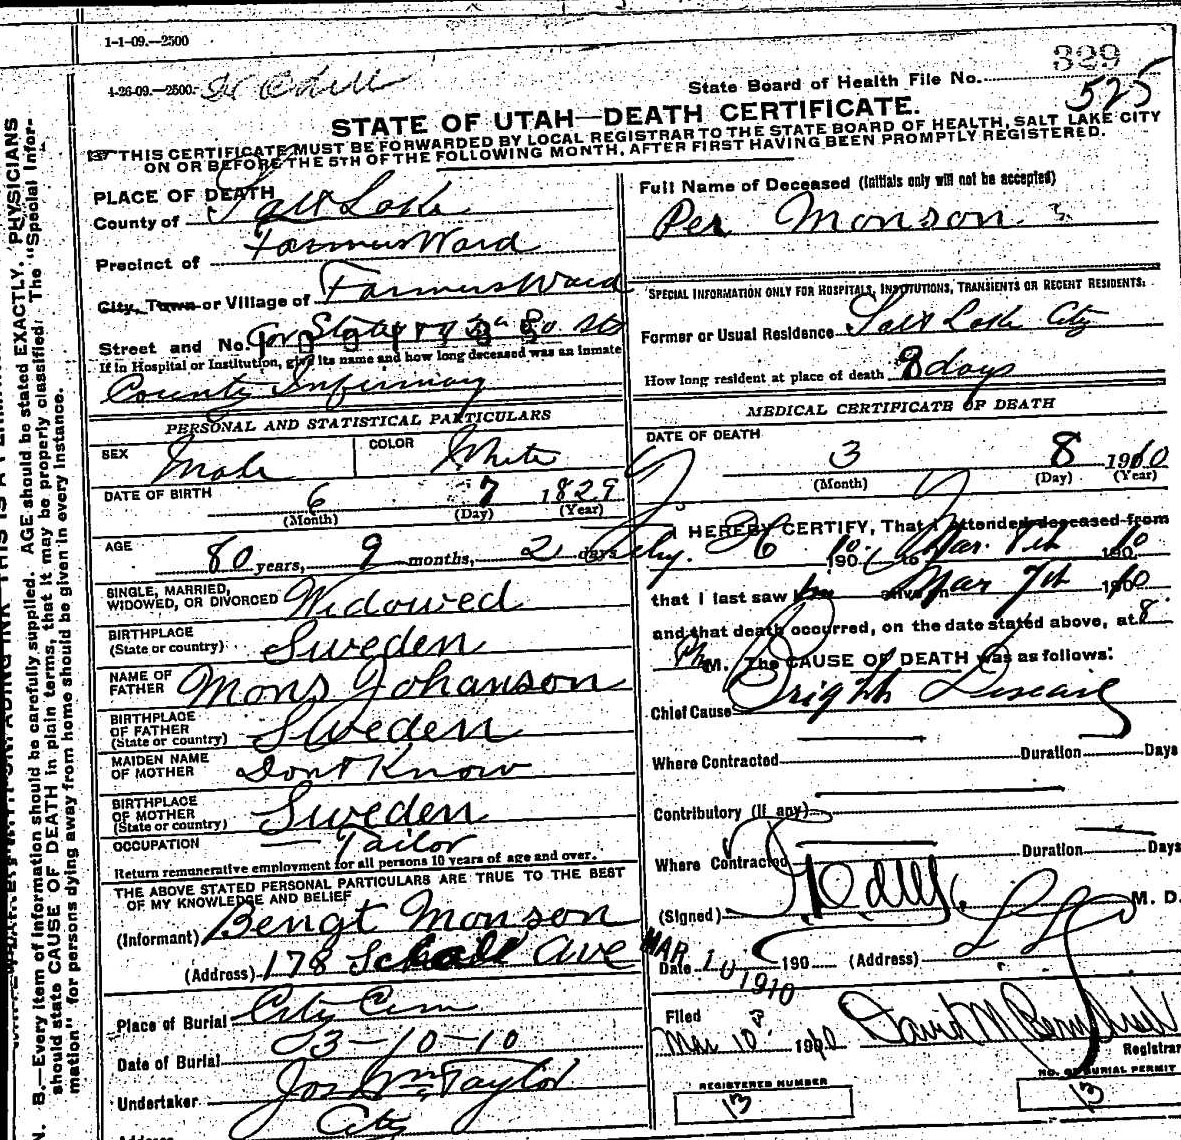 1-1-09.—2500
329
4-26-09.—2500.
State Board of Health File No.
525
STATE OF UTAH—DEATH CERTIFICATE.
THIS CERTIFICATE MUST BE FORWARDED BY LOCAL REGISTRAR TO THE STATE BOARD OF HEALTH, SALT LAKE CITY
ON OR BEFORE THE 5TH OF THE FOLLOWING MONTH, AFTER FIRST HAVING BEEN PROMPTLY REGISTERED.
PLACE OF DEATH
County of Salt Lake
Precinct of Farmers Ward
City, Town or Village of Farmers Ward
Street and No. Cor State
If in Hospital or Institution, give its name and how long deceased was an inmate
County Infirmary
PERSONAL AND STATISTICAL PARTICULARS
SEX Male COLOR White
DATE OF BIRTH 6 7 1829
(Month) (Day) (Year)
AGE 80 years, 9 months, 2 days
SINGLE, MARRIED,
WIDOWED, OR DIVORCED Widowed
BIRTHPLACE
(State or country) Sweden
NAME OF
FATHER Mons Johanson
BIRTHPLACE
OF FATHER
(State or country) Sweden
MAIDEN NAME
OF MOTHER Dont Know
BIRTHPLACE
OF MOTHER
(State or country) Sweden
OCCUPATION Tailor
Return remunerative employment for all persons 10 years of age and over.
THE ABOVE STATED PERSONAL PARTICULARS ARE TRUE TO THE BEST
OF MY KNOWLEDGE AND BELIEF
(Informant) Bengt Monson
(Address) 178 Ave
Place of Burial City Cem
Date of Burial 3-10-10
Undertaker Jos Wm Taylor
City
Full Name of Deceased (Initials only will not be accepted)
Per Monson
SPECIAL INFORMATION ONLY FOR HOSPITALS, INSTITUTIONS, TRANSIENTS OR RECENT RESIDENTS.
Former or Usual Residence Salt Lake City
How long resident at place of death 8 days
MEDICAL CERTIFICATE OF DEATH
DATE OF DEATH
3 8 1910
(Month) (Day) (Year)
I HEREBY CERTIFY, That I attended deceased from
190 to Mar. 8th 190
that I last saw him alive on Mar 7th 190
and that death occurred, on the date stated above, at 8
P M. The CAUSE OF DEATH was as follows:
Chief Cause Bright Disease
Where Contracted Duration Days
Contributory (if any)
Where Contracted Duration Days
(Signed) M. D.
MAR 10 1910
Date 190 (Address)
Filed
Mar 10 1910 David M
Registrar
REGISTERED NUMBER
13
NO. OF BURIAL PERMIT
13
N. B.—Every item of information should be carefully supplied. AGE should be stated EXACTLY. PHYSICIANS
should state CAUSE OF DEATH in plain terms, that it may be properly classified. The "Special Infor-
mation" for persons dying away from home should be given in every instance.